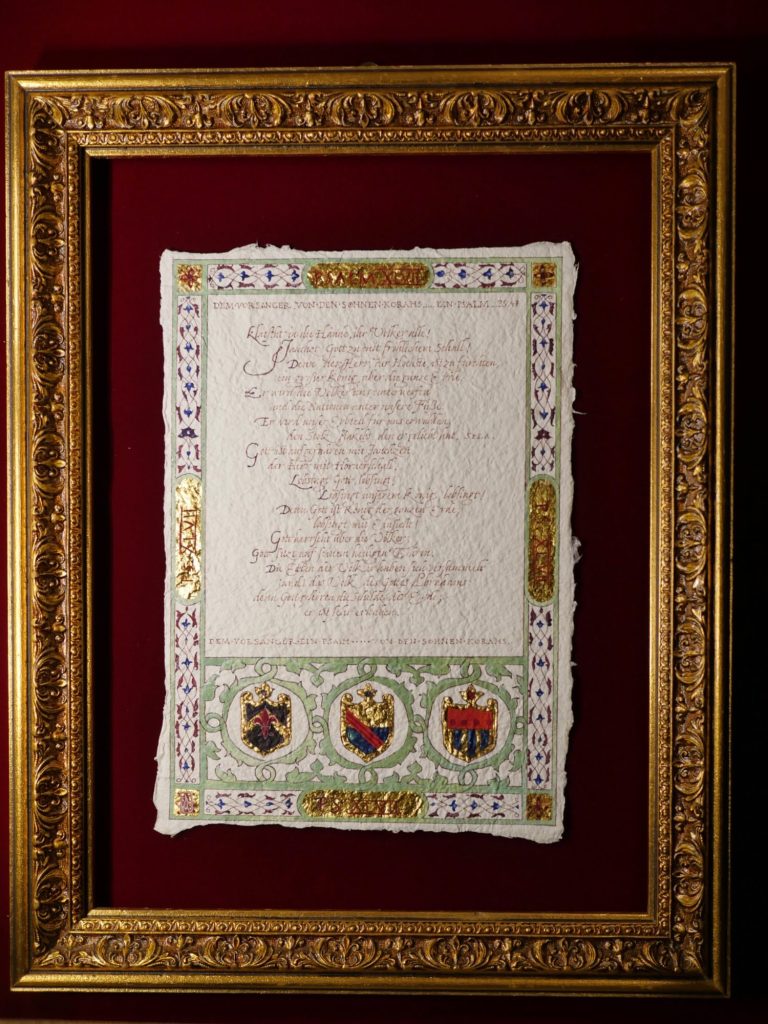 DEM·VORSÄNGER·VON·DEN·SØHNEN·KORAHS EIN·PSALM PS.47
Klatscht in die Hände, ihr Völker alle!
Jauchzet Gott zu mit fröhlichem Schall!
Denn der Herr, der Höchste, ist zu fürchten,
ein großer König über die ganze Erde
Er wird die Völker uns unterwerfen
und die Nationen unter unsere Füße
Er wird unser Erbteil für uns erwählen,
den Stolz Jakobs, den er geliebt hat, SELA.
Gott ist aufgefahren mit Jauchzen,
der Herr mit Hörnerschall,
Lobsingt Gott, lobsingt!
Lobsingt unserem König, lobsingt!
Denn Gott ist König der ganzen Erde;
lobsingt mit Einsicht!
Gott herrscht über die Völker;
Gott sitzt auf seinem heiligen Thron.
Die Edlen der Völker haben sich versammelt
und das Volk des Gottes Abrahams
denn Gott gehören die Schilde der Erde;
er ist sehr erhaben.
DEM·VORSÄNGER·EIN·PSALM VON·DEN·SØHNEN·KORAHS